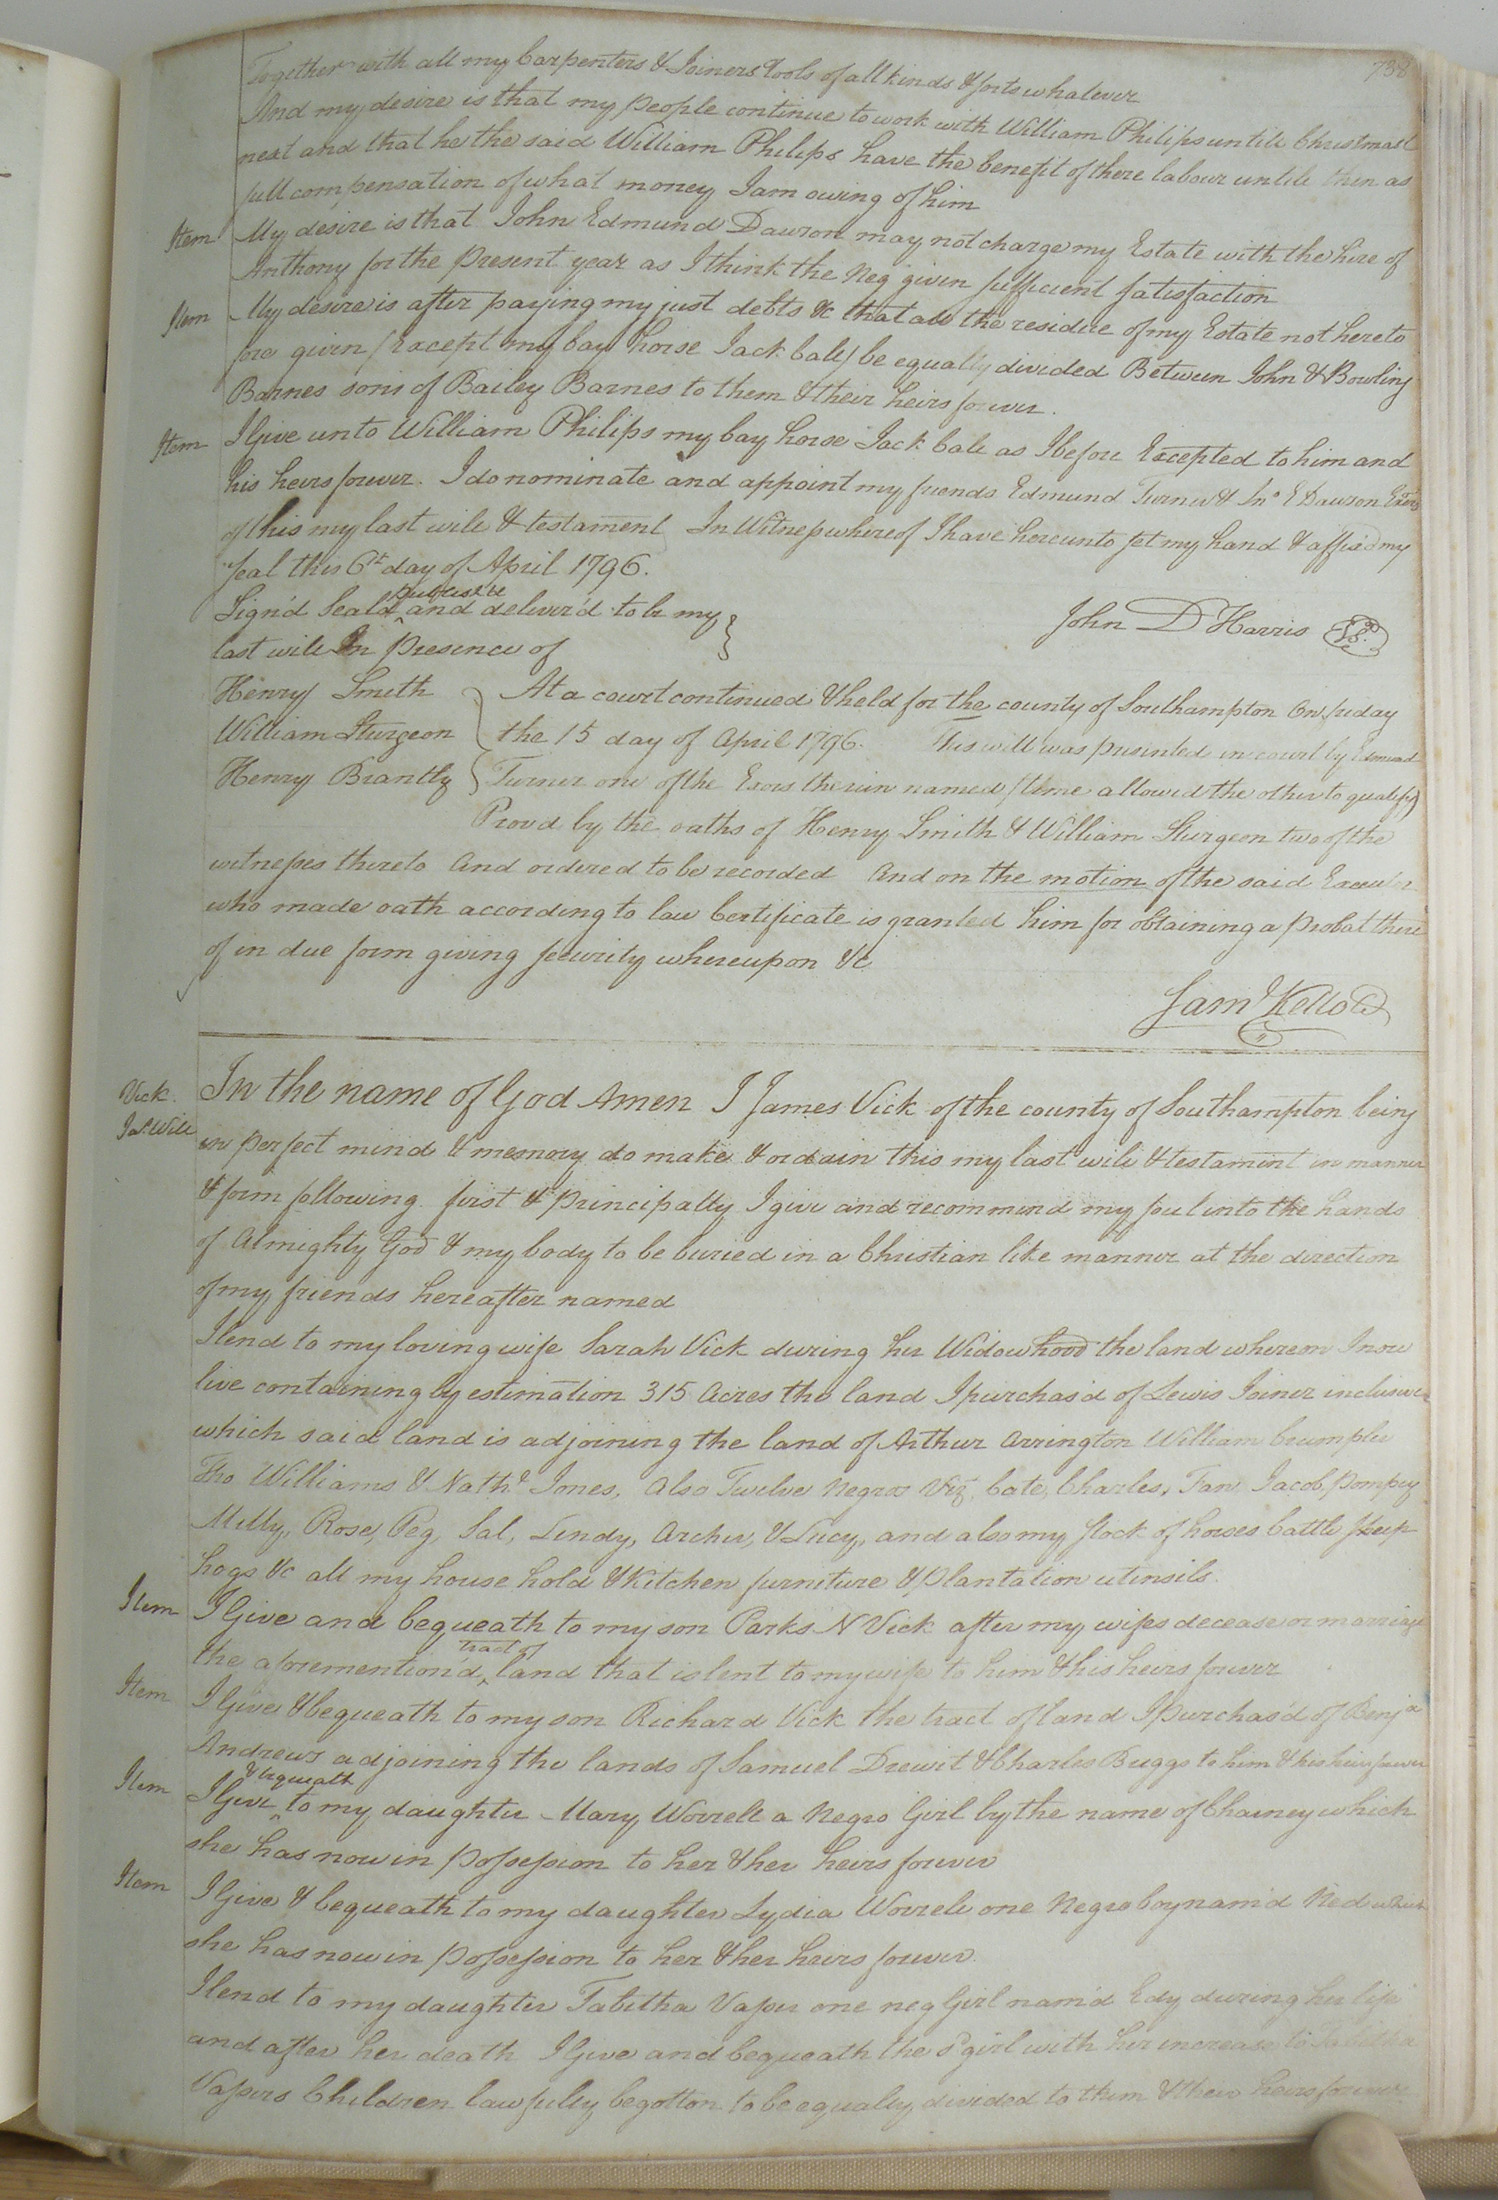 738
Together with all my Carpenters & Joiners Tools of all kinds & sorts whatever
And my desire is that my people continue to work with William Philips untill Christmast
next and that he the said William Philips have the benefit of there labour untill then as
full compensation of what money I am owing of him
Item My desire is that John Edmund Dawson may not charge my Estate with the hire of
Anthony for the Present year as I think the Neg given sufficient satisfaction
Item My desire is after paying my just debts &c that all the residue of my Estate not hereto
fore given (Except my bay horse Jack ball) be equally divided Between John & Bowling
Barnes sons of Bailey Barnes to them & their heirs forever.
Item I Give unto William Philips my bay horse Jack ball as I before Excepted to him and
his heirs forever. I do nominate and appoint my friends Edmund Turner & Jno E Dawson Exors
of this my last will & testament In Witness whereof I have hereunto set my hand & affix'd my
seal this 6th day of April 1796.
Sign'd Seal'd publish'd and deliver'd to be my
last will In presence of
John D Harris LS.
Henry Smith
William Sturgeon
Henry Brantly
At a court continued & held for the county of Southampton On friday
the 15 day of April 1796. This will was presented in court by Edmund
Turner one of the Exors therein named (time allowed the other to qualify)
Prov'd by the oaths of Henry Smith & William Sturgeon two of the
witnesses thereto And ordered to be recorded And on the motion of the said Executor
who made oath according to law Certificate is granted him for obtaining a probat there
of in due form giving security whereupon &c
Saml Kello
Vick
Jas Will
In the name of God Amen I James Vick of the county of Southampton being
in perfect mind & memory do make & ordain this my last will & testament in manner
& form following. first & Principally I give and recommend my soul into the hands
of Almighty God & my body to be buried in a Christian like manner at the direction
of my friends hereafter named
I lend to my loving wife Sarah Vick during her Widowhood the land whereon I now
live containing by estimation 315 Acres the land I purchas'd of Lewis Joiner inclusive
which said land is adjoining the land of Arthur Arrington William Crumpler
Williams & Nathl Jones, Also Twelve Negros Viz, Cate, Charles, Tan, Jacob, Pompey
Milly, Rose, Peg, Sal, Lindy, Archer, & Lucy, and also my stock of horses Cattle sheep
hogs &c all my house hold & Kitchen furniture & Plantation utensils.
Item I Give and bequeath to my son Parks N Vick after my wifes decease or marriage
the aforemention'd tract of land that is lent to my wife to him & his heirs forever
Item I Give & bequeath to my son Richard Vick the tract of land I purchas'd of Benja
Andrews adjoining the lands of Samuel Drewit & Charles Buggs to him & his heirs forever
Item I Give & bequeath to my daughter Mary Worrell a Negro Girl by the name of Chainey which
she has now in Possession to her & her heirs forever
Item I Give & bequeath to my daughter Lydia Worrell one Negro boy nam'd Ned which
she has now in Possession to her & her heirs forever.
I lend to my daughter Tabitha Vasser one neg Girl nam'd Edy during her life
and after her death I Give and bequeath the sd girl with her increase to Tabitha
Vassers Children lawfully begotton to be equally divided to them & their heirs forever